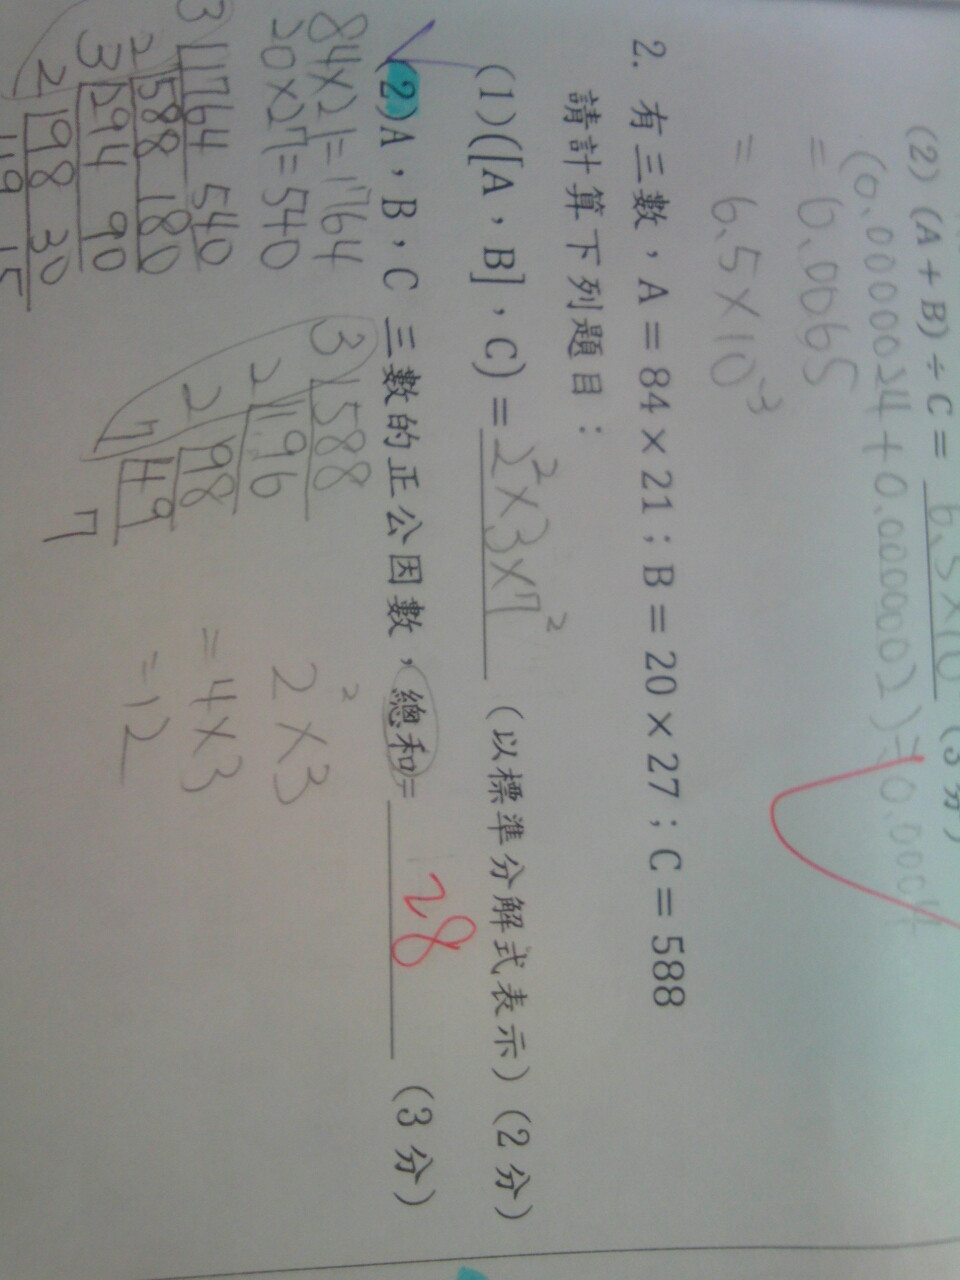 (2) (A + B) ÷ C = 6.5×10 (3分)
(0.0000024+0.0000002)÷0.0004
= 0.0065
= 6.5×10^-3
2. 有三數，A = 84 × 21；B = 20 × 27；C = 588
請計算下列題目：
(1)([A，B]，C) = 2²×3×7² (以標準分解式表示) (2分)
(2)A，B，C 三數的正公因數，總和= 28 (3分)
84×21=1764
20×27=540
3 1764 540
2 588 180
3 294 90
2 98 30
49 15
3 588
2 196
2 98
7 49
7
2²×3
=4×3
=12